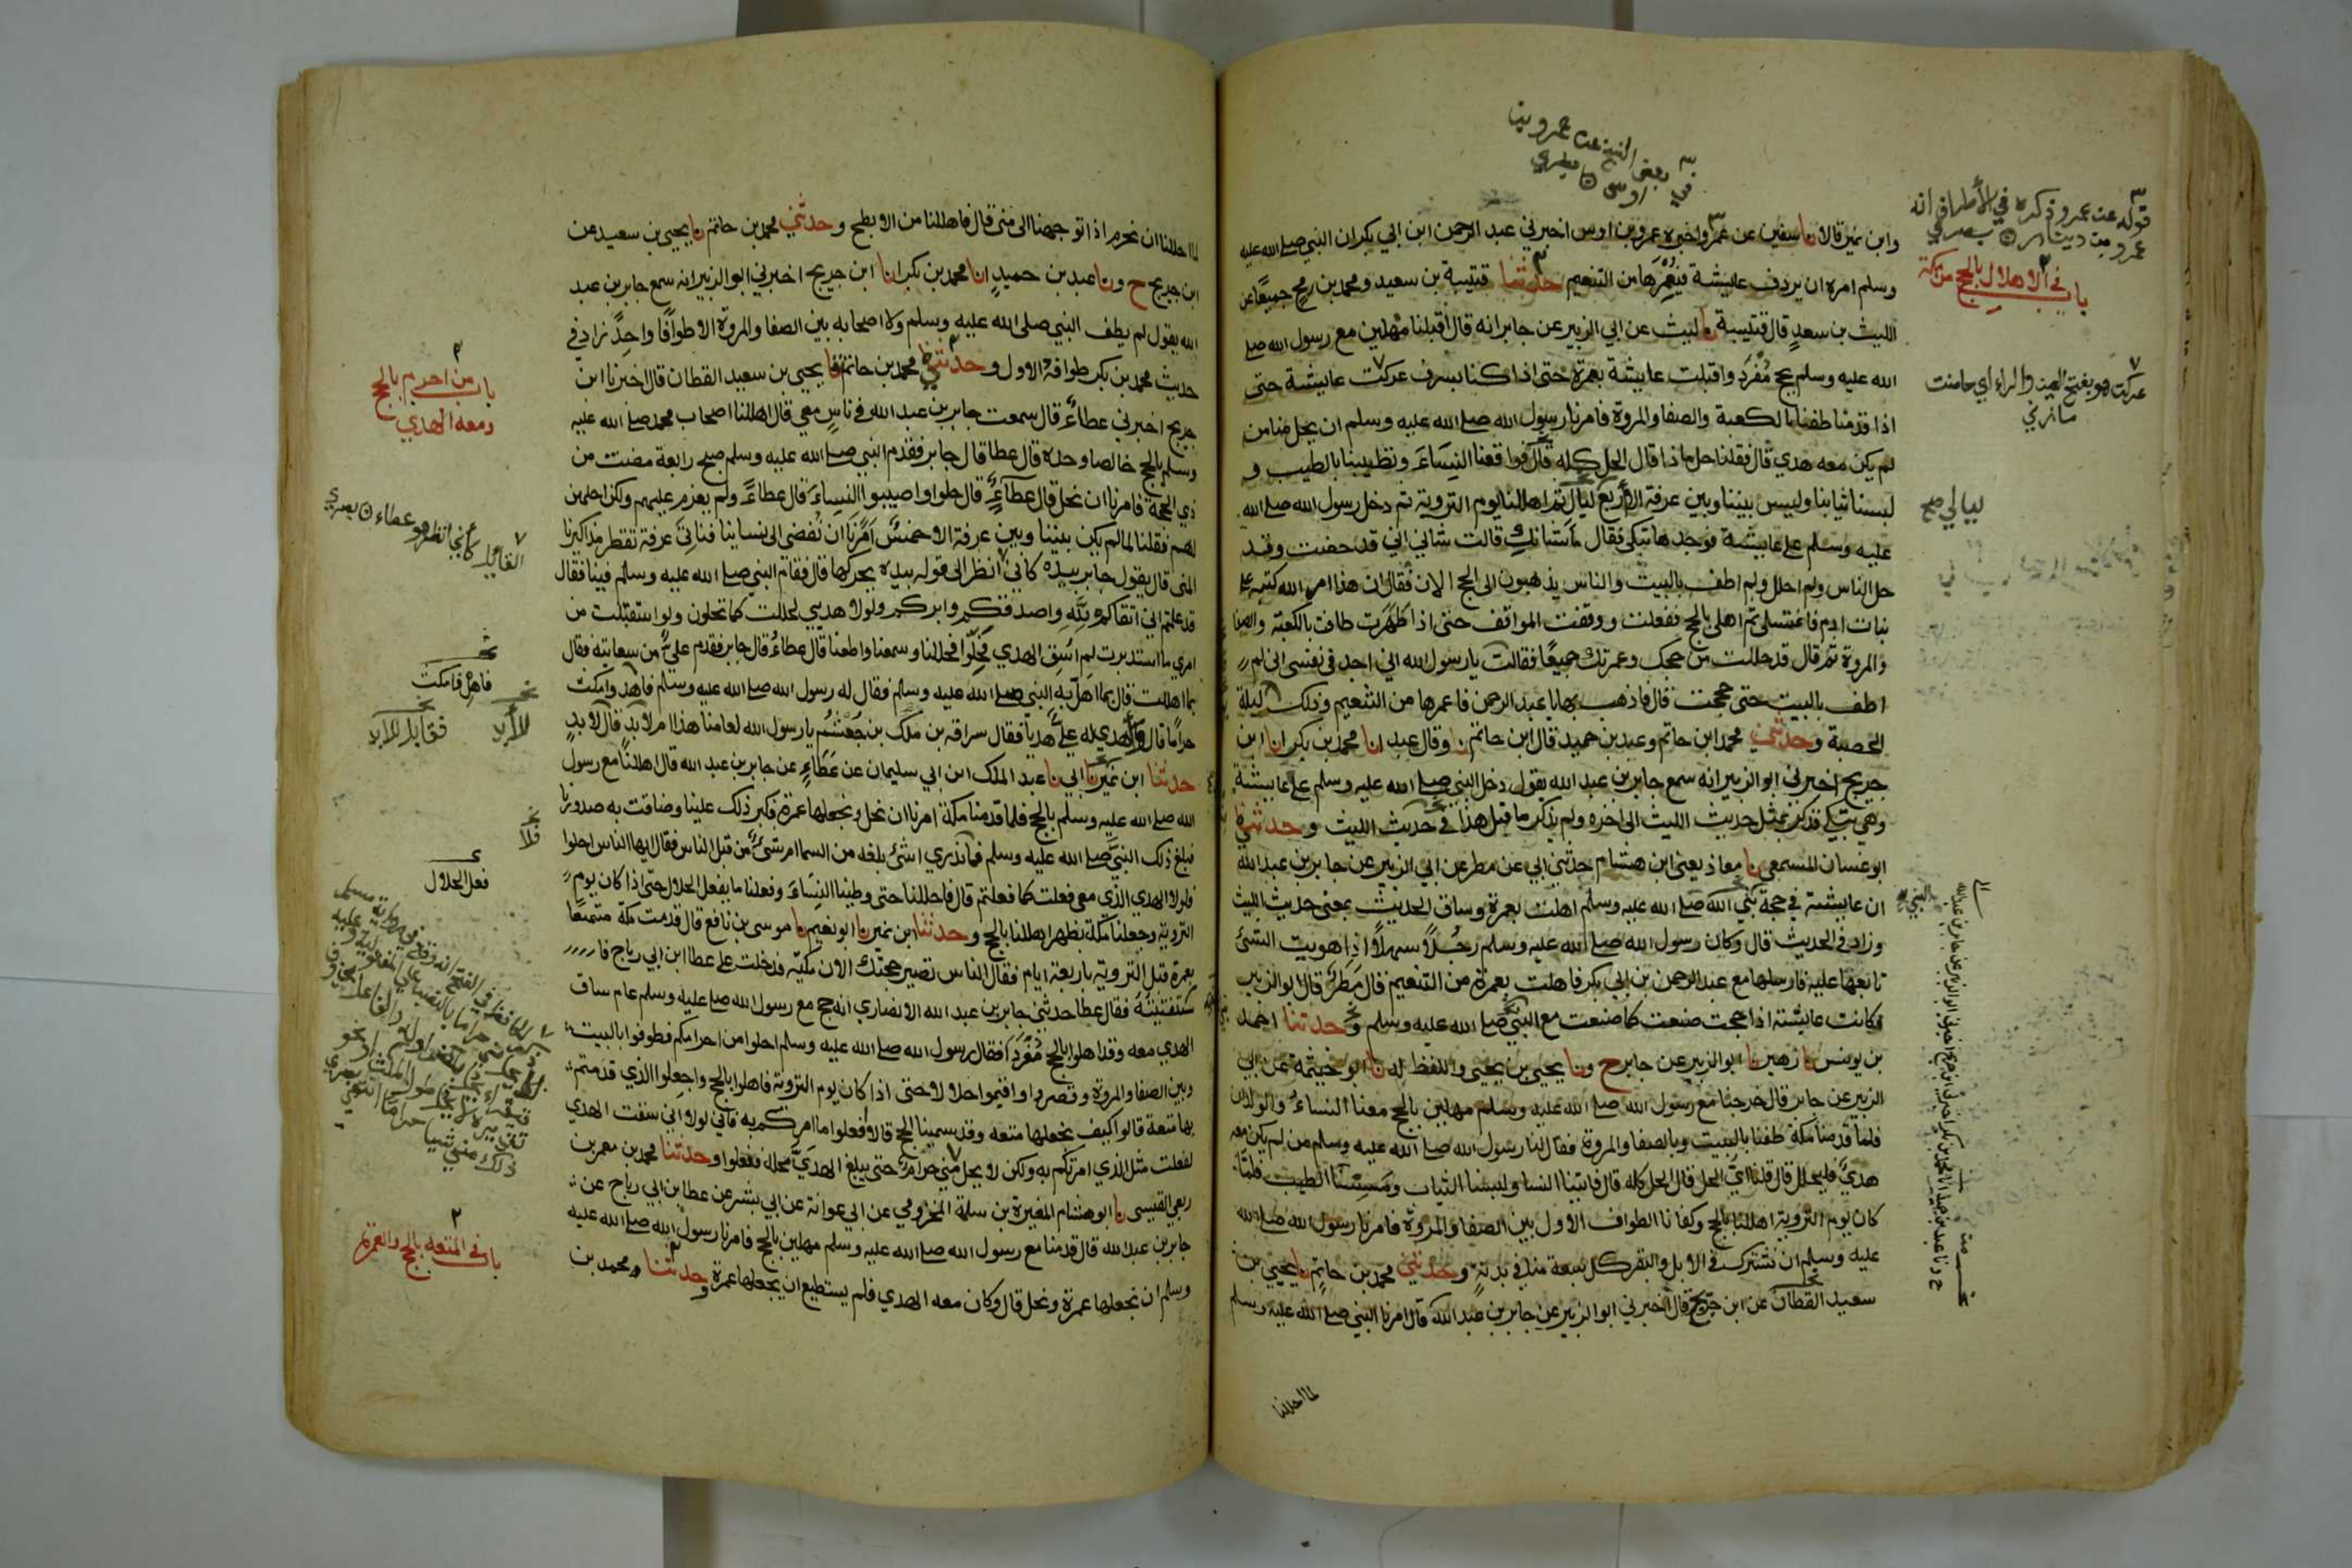 وابن نمير قالا نا سفين عن عمرو اخبره عمرو بن اوس اخبرني عبد الرحمن ابن ابي بكر ان النبي صلى الله عليه
وسلم امره ان يردف عايشة فيعمرها من التنعيم حدثنا قتيبة بن سعيد ومحمد بن رمح جميعا عن
الليث بن سعد قال قتيبة نا ليث عن ابي الزبير عن جابر انه قال اقبلنا مهلين مع رسول الله صلى
الله عليه وسلم بحج مفرد واقبلت عايشة بعمرة حتى اذا كنا بسرف عركت عايشة حتى
اذا قدمنا طفنا بالكعبة والصفا والمروة فامرنا رسول الله صلى الله عليه وسلم ان يحل منا من
لم يكن معه هدي قال فقلنا حل ماذا قال الحل كله قال فواقعنا النساء وتطيبنا بالطيب و
لبسنا ثيابنا وليس بيننا وبين عرفة الا اربع ليال ثم اهللنا يوم التروية ثم دخل رسول الله صلى الله
عليه وسلم على عايشة فوجدها تبكي فقال ما شانك قالت شاني اني قد حضت وقد
حل الناس ولم احلل ولم اطف بالبيت والناس يذهبون الى الحج الان فقال ان هذا امر الله كتبه على
بنات ادم فاغتسلي ثم اهلي بالحج ففعلت ووقفت المواقف حتى اذا طهرت طافت بالكعبة والصفا
والمروة ثم قال قد حللت من حجك وعمرتك جميعا فقالت يا رسول الله اني اجد في نفسي اني لم
اطف بالبيت حتى حججت قال فاذهب بها يا عبد الرحمن فاعمرها من التنعيم وذلك ليلة
الحصبة وحدثني محمد ابن حاتم وعبد بن حميد قال ابن حاتم نا وقال عبد انا محمد بن بكر انا ابن
جريج اخبرني ابو الزبير انه سمع جابر بن عبد الله يقول دخل النبي صلى الله عليه وسلم على عايشة
وهي تبكي فذكر بمثل حديث الليث الى اخره ولم يذكر ما قبل هذا في حديث الليث وحدثني
ابو غسان المسمعي نا معاذ يعني ابن هشام حدثني ابي عن مطر عن ابي الزبير عن جابر بن عبد الله
ان عايشة في حجة نبي الله صلى الله عليه وسلم اهلت بعمرة وساق الحديث بمعنى حديث الليث
وزاد في الحديث قال وكان رسول الله صلى الله عليه وسلم رجلا سهلا اذا هويت الشئ
تابعها عليه فارسلها مع عبد الرحمن بن ابي بكر فاهلت بعمرة من التنعيم قال مطر قال ابو الزبير
فكانت عايشة اذا حجت صنعت كما صنعت مع النبي صلى الله عليه وسلم وحدثنا احمد
بن يونس نا زهير نا ابو الزبير عن جابر ح ونا يحيى بن يحيى واللفظ له نا ابو خيثمة عن ابي
الزبير عن جابر قال خرجنا مع رسول الله صلى الله عليه وسلم مهلين بالحج معنا النساء والولدان
فلما قدمنا مكة طفنا بالبيت وبالصفا والمروة فقال لنا رسول الله صلى الله عليه وسلم من لم يكن معه
هدي فليحلل قال قلنا اي الحل قال الحل كله قال فاتينا النسا ولبسنا الثياب ومسسنا الطيب فلما
كان يوم التروية اهللنا بالحج وكفانا الطواف الاول بين الصفا والمروة فامرنا رسول الله صلى الله
عليه وسلم ان نشترك في الابل والبقر كل سبعة منا في بدنة وحدثني محمد بن حاتم نا يحيى بن
سعيد القطان عن ابن جريج قال اخبرني ابو الزبير عن جابر بن عبد الله قال امرنا النبي صلى الله عليه وسلم
لما احللنا
قوله عن عمرو ذكره في الأطراف انه
عمرو بن دينار
باب في الاهلال بالحج من مكة
عركت هو بفتح العين والراء اي حاضت
ليالي صح
لما احللنا ان نحرم اذا توجهنا الى منى قال فاهللنا من الابطح وحدثني محمد بن حاتم نا يحيى بن سعيد عن
ابن جريج ح ونا عبد بن حميد انا محمد بن بكر انا ابن جريج اخبرني ابو الزبير انه سمع جابر بن عبد
الله يقول لم يطف النبي صلى الله عليه وسلم ولا اصحابه بين الصفا والمروة الا طوافا واحدا زاد في
حديث محمد بن بكر طوافه الاول وحدثني محمد بن حاتم نا يحيى بن سعيد القطان قال اخبرنا ابن
جريج اخبرني عطاء قال سمعت جابر بن عبد الله في ناس معي قال اهللنا اصحاب محمد صلى الله عليه
وسلم بالحج خالصا وحده قال عطا قال جابر فقدم النبي صلى الله عليه وسلم صبح رابعة مضت من
ذي الحجة فامرنا ان نحل قال عطاء قال حلوا واصيبوا النساء قال عطاء ولم يعزم عليهم ولكن احلهن
لهم فقلنا لما لم يكن بيننا وبين عرفة الا خمس امرنا ان نفضي الى نساينا فناتي عرفة تقطر مذاكيرنا
المني قال يقول جابر بيده كاني انظر الى قوله بيده يحركها قال فقام النبي صلى الله عليه وسلم فينا فقال
قد علمتم اني اتقاكم لله واصدقكم وابركم ولولا هديي لحللت كما تحلون ولو استقبلت من
امري ما استدبرت لم اسق الهدي فحلوا فحللنا وسمعنا واطعنا قال عطاء قال جابر فقدم علي من سعايته فقال
بما اهللت قال بما اهل به النبي صلى الله عليه وسلم فقال له رسول الله صلى الله عليه وسلم فاهد وامكث
حراما قال واهدى له علي هديا فقال سراقة بن ملك بن جعشم يا رسول الله لعامنا هذا ام لابد قال لابد
حدثنا ابن نمير نا ابي نا عبد الملك ابن ابي سليمان عن عطاء عن جابر بن عبد الله قال اهللنا مع رسول
الله صلى الله عليه وسلم بالحج فلما قدمنا مكة امرنا ان نحل ونجعلها عمرة فكبر ذلك علينا وضاقت به صدورنا
فبلغ ذلك النبي صلى الله عليه وسلم فما ندري اشئ بلغه من السما ام شئ من قبل الناس فقال ايها الناس احلوا
فلولا الهدي الذي معي فعلت كما فعلتم قال فاحللنا حتى وطئنا النساء وفعلنا ما يفعل الحلال حتى اذا كان يوم
التروية وجعلنا مكة بظهر اهللنا بالحج وحدثنا ابن نمير نا ابو نعيم نا موسى بن نافع قال قدمت مكة متمتعا
بعمرة قبل التروية باربعة ايام فقال الناس تصير حجتك الان مكية فدخلت على عطا ابن ابي رباح فا
ستفتيته فقال عطا حدثني جابر بن عبد الله الانصاري انه حج مع رسول الله صلى الله عليه وسلم عام ساق
الهدي معه وقد اهلوا بالحج مفردا فقال رسول الله صلى الله عليه وسلم احلوا من احرامكم فطوفوا بالبيت
وبين الصفا والمروة وقصروا واقيموا حلالا حتى اذا كان يوم التروية فاهلوا بالحج واجعلوا الذي قدمتم
بها متعة قالوا كيف نجعلها متعة وقد سمينا الحج قال افعلوا ما امركم به فاني لولا اني سقت الهدي
لفعلت مثل الذي امرتكم به ولكن لا يحل مني حرام حتى يبلغ الهدي محله ففعلوا وحدثنا محمد بن معمر بن
ربعي القيسي نا ابو هشام المغيرة بن سلمة المخزومي عن ابي عوانة عن ابي بشر عن عطا بن ابي رباح عن
جابر بن عبد الله قال قدمنا مع رسول الله صلى الله عليه وسلم مهلين بالحج فامرنا رسول الله صلى الله عليه
وسلم ان نجعلها عمرة ونحل قال وكان معه الهدي فلم يستطيع ان يجعلها عمرة وحدثنا محمد بن
باب من احرم بالحج
ومعه الهدي
فعل الحلال
باب في المتعة بالحج والعمرة